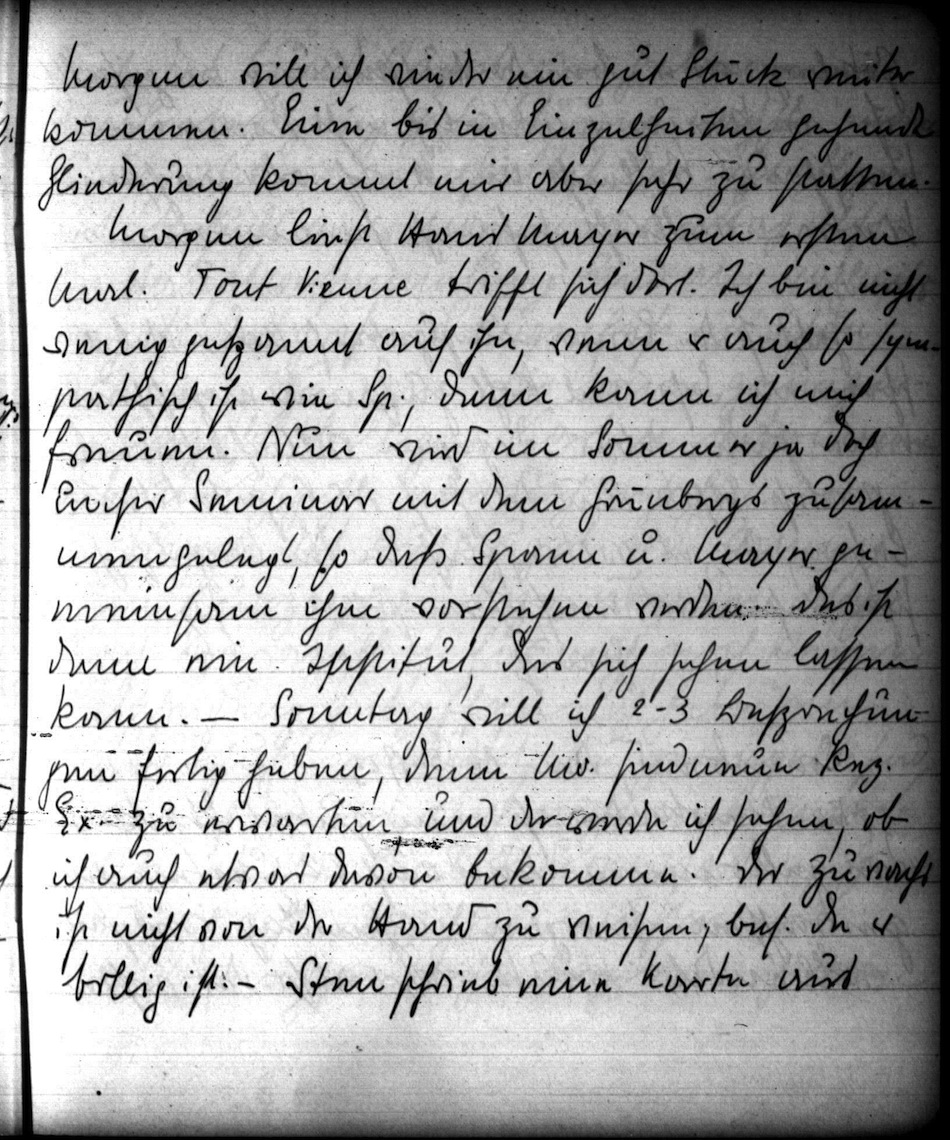 Morgen will ich wieder ein gut Stück weiter
kommen. Eine bis in Einzelheiten gehende
Gliederung kommt mir aber sehr zu statten.
Morgen liest Hans Mayer zum ersten
Mal. Tout Vienne trifft sich dort. Ich bin nicht
wenig gespannt auf ihn, wenn er auch so sym-
pathisch ist wie Sp., dann kann ich mich
freuen. Nun wird im Sommer ja doch
Seminar mit dem Grünbergs zusam-
mengelegt, so daß Spann u. Mayer ge-
meinsam ihm vorstehen werden. Das ist
dann ein Institut, das sich sehen lassen
kann. — Sonntag will ich 2-3 Besprechun-
gen fertig haben, denn Mo. sind neue Rez.
Ex. zu erwarten und da werde ich sehen, ob
ich auch etwas davon bekomme. Der Zuwachs
ist nicht von der Hand zu weisen, bes. da er
billig ist. – Sten schrieb eine Karte aus